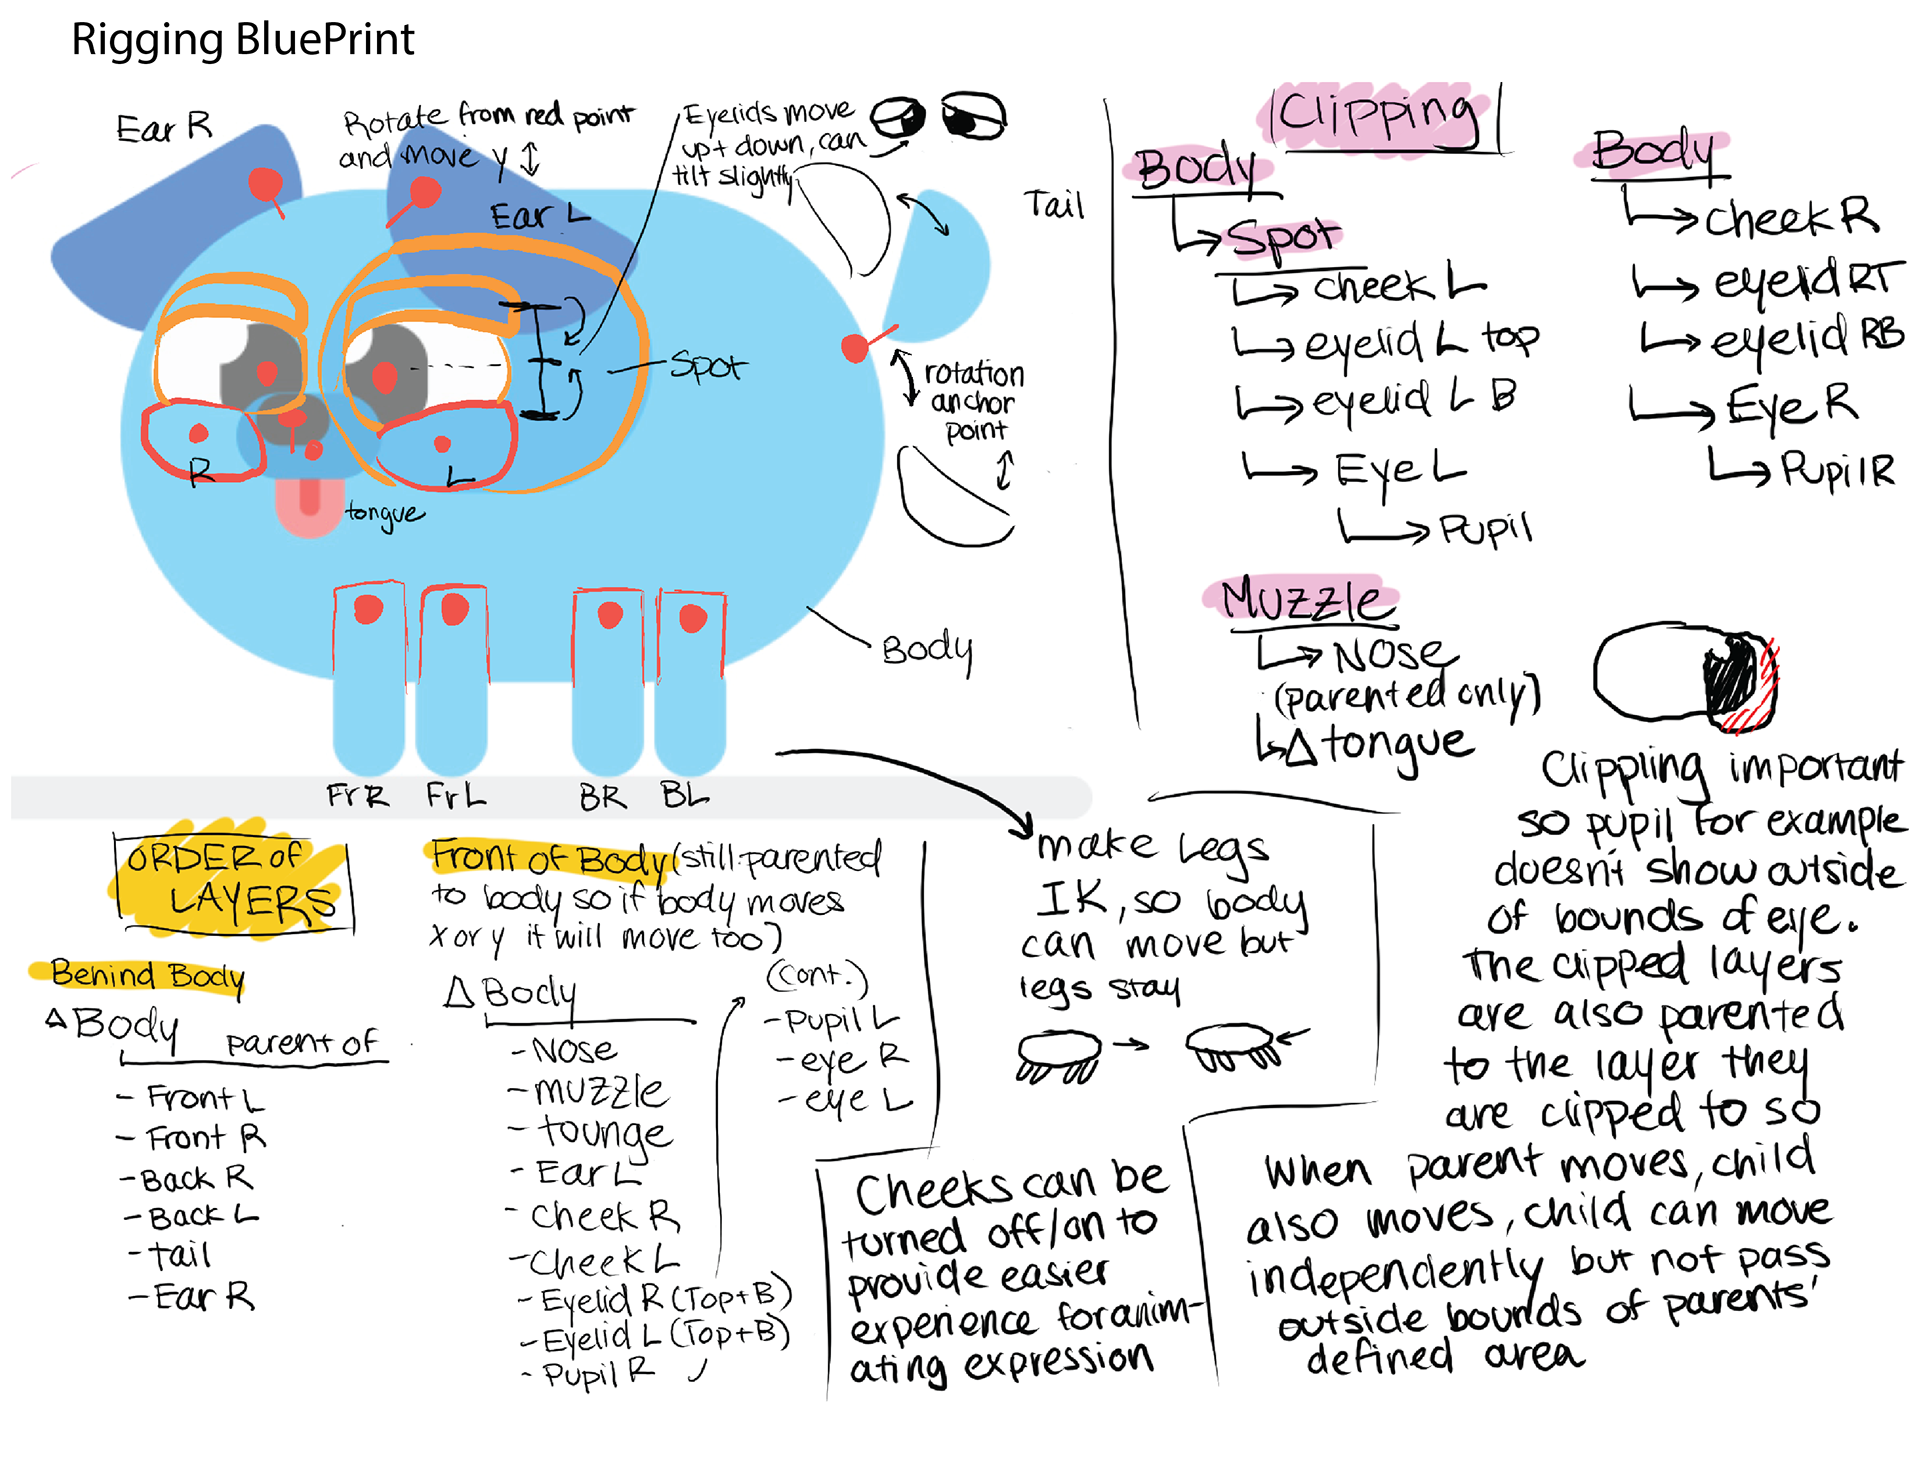 Rigging BluePrint
Ear R
Rotate from red point
and move y ↕
Ear L
Eyelids move
up + down, can
tilt slightly
Tail
Spot
rotation
anchor
point
R
L
tongue
Body
FrR
FrL
BR
BL
Clipping
Body
Spot
cheek L
eyelid L top
eyelid L B
Eye L
Pupil
Body
cheek R
eyelid RT
eyelid RB
Eye R
Pupil R
Muzzle
Nose
(parented only)
Δ tongue
Clippling important
so pupil for example
doesn't show outside
of bounds of eye.
The clipped layers
are also parented
to the layer they
are clipped to so
when parent moves, child
also moves, child can move
independently but not pass
outside bounds of parents'
defined area
ORDER of
LAYERS
Behind Body
Δ Body
parent of
- Front L
- Front R
- Back R
- Back L
- tail
- Ear R
Front of Body (still parented
to body so if body moves
x or y it will move too)
Δ Body
- Nose
- muzzle
- tounge
- Ear L
- cheek R
- cheek L
- Eyelid R (Top+B)
- Eyelid L (Top+B)
- Pupil R
(cont.)
- Pupil L
- eye R
- eye L
make legs
IK, so body
can move but
legs stay
Cheeks can be
turned off/on to
provide easier
experience for anim-
ating expression